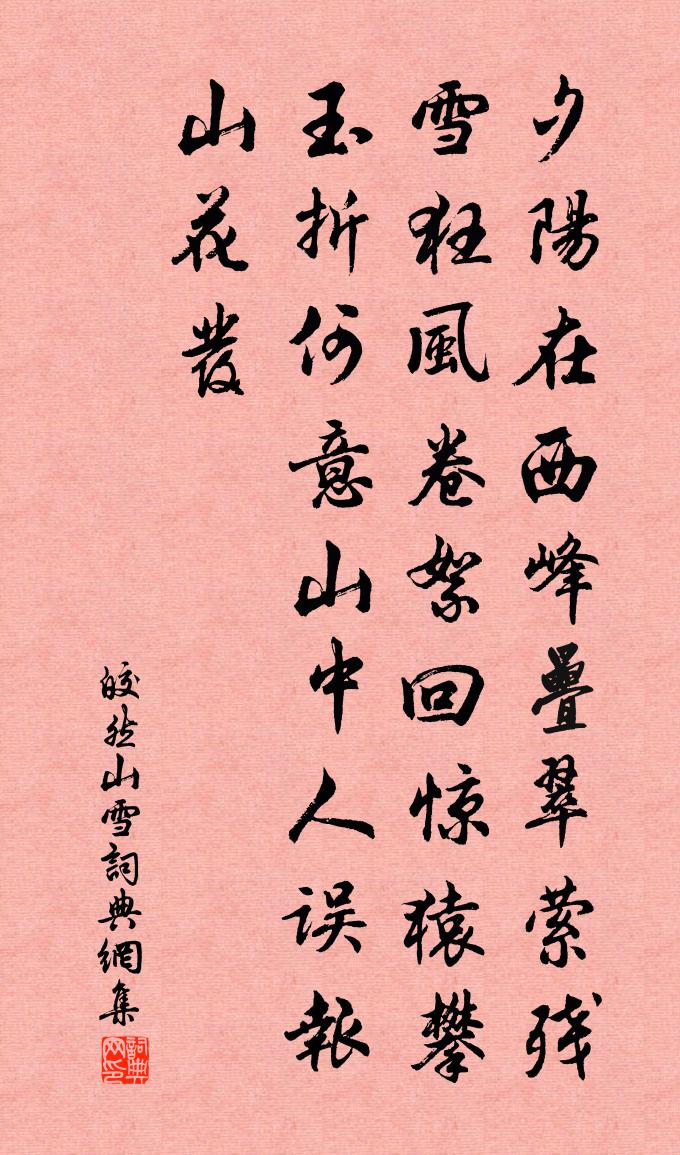 夕陽在西峰疊翠縈残
雪狂風卷絮回惊猿攀
玉折何意山中人误報
山花發
皎然山雪詞典網集
詞典网印